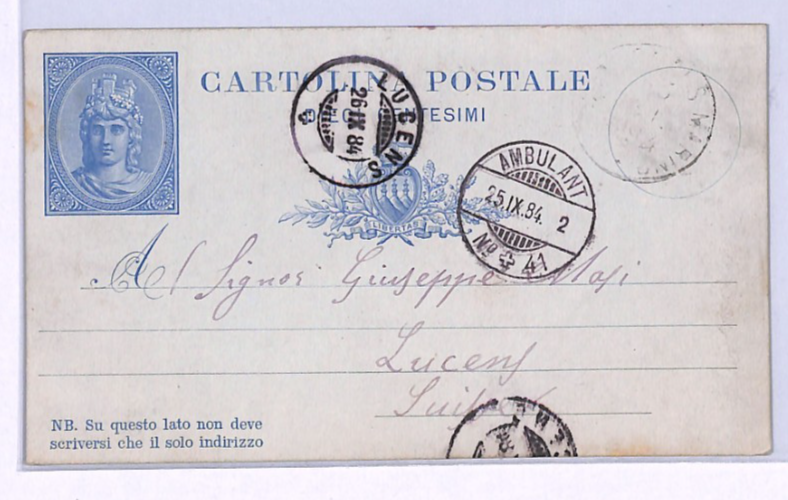 CARTOLINA POSTALE
DIECI CENTESIMI
LUCENS
26 IX 84
S. MARINO
AMBULANT
25.IX.84. 2
No 41
LIBERTAS
Al Signor Giuseppe Masi
Lucens
NB. Su questo lato non deve
scriversi che il solo indirizzo